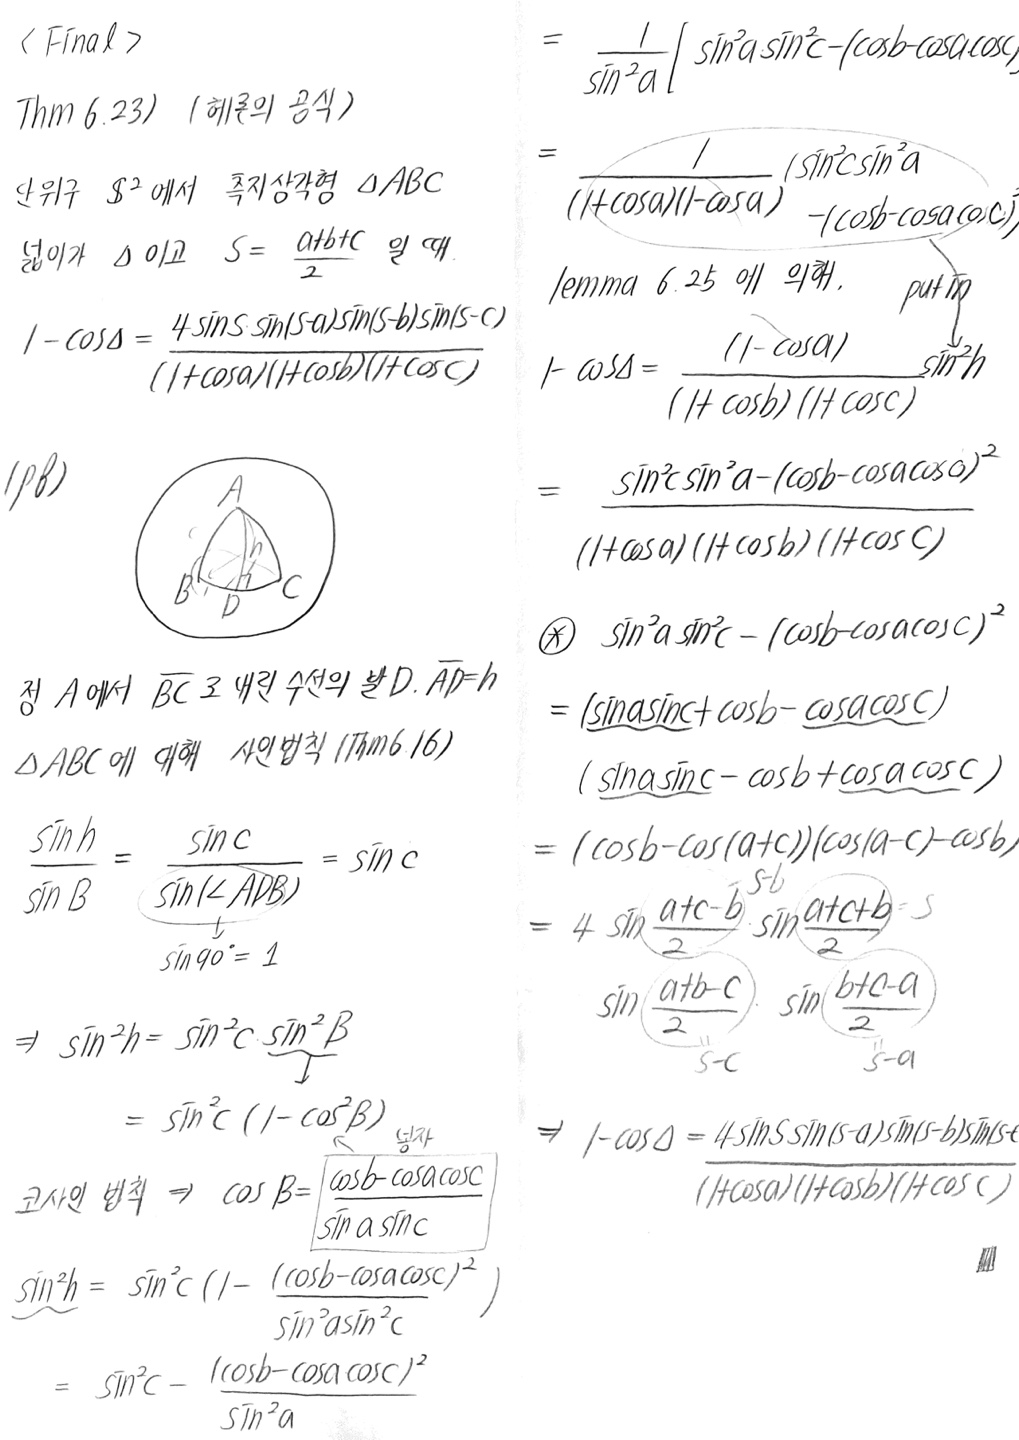 < Final >
Thm 6.23) (헤론의 공식)
단위구 $² 에서 측지삼각형 △ABC
넓이가 △ 이고 S = a+b+c / 2 일 때
1-cos△ = 4 sinS sin(s-a) sin(s-b) sin(s-c) / (1+cosa)(1+cosb)(1+cosc)
(pf)
A
h
B D C
점 A에서 BC로 내린 수선의 발 D. AD=h
△ABC에 대해 사인법칙 (Thm 6.16)
sin h / sin B = sin c / sin(∠ADB) = sin c
↓
sin90° = 1
⇒ sin²h = sin²c · sin²B
↓
= sin²c (1-cos²B)
넣자
코사인 법칙 ⇒ cos B = cosb-cosacosc / sin a sin c
sin²h = sin²c (1 - (cosb-cosacosc)² / sin²asin²c )
= sin²c - (cosb-cosacosc)² / sin²a
= 1 / sin²a [ sin²a sin²c-(cosb-cosacosc)
= 1 / (1+cosa)(1-cosa) (sin²csin²a
-(cosb-cosacosc)²)
lemma 6.25 에 의해. put in
1-cos△ = (1-cosa) / (1+cosb)(1+cosc) sin²h
= sin²c sin²a-(cosb-cosacosc)² / (1+cosa)(1+cosb)(1+cosc)
⊛ sin²a sin²c - (cosb-cosacosc)²
= (sinasinc+cosb-cosacosc)
(sinasinc-cosb+cosacosc)
= (cosb-cos(a+c))(cos(a-c)-cosb)
s-b
= 4 sin a+c-b / 2 · sin a+c+b / 2 = s
sin a+b-c / 2 · sin b+c-a / 2
= s-c = s-a
⇒ 1-cos△ = 4 sinS sin(s-a) sin(s-b) sin(s-c / (1+cosa)(1+cosb)(1+cosc)